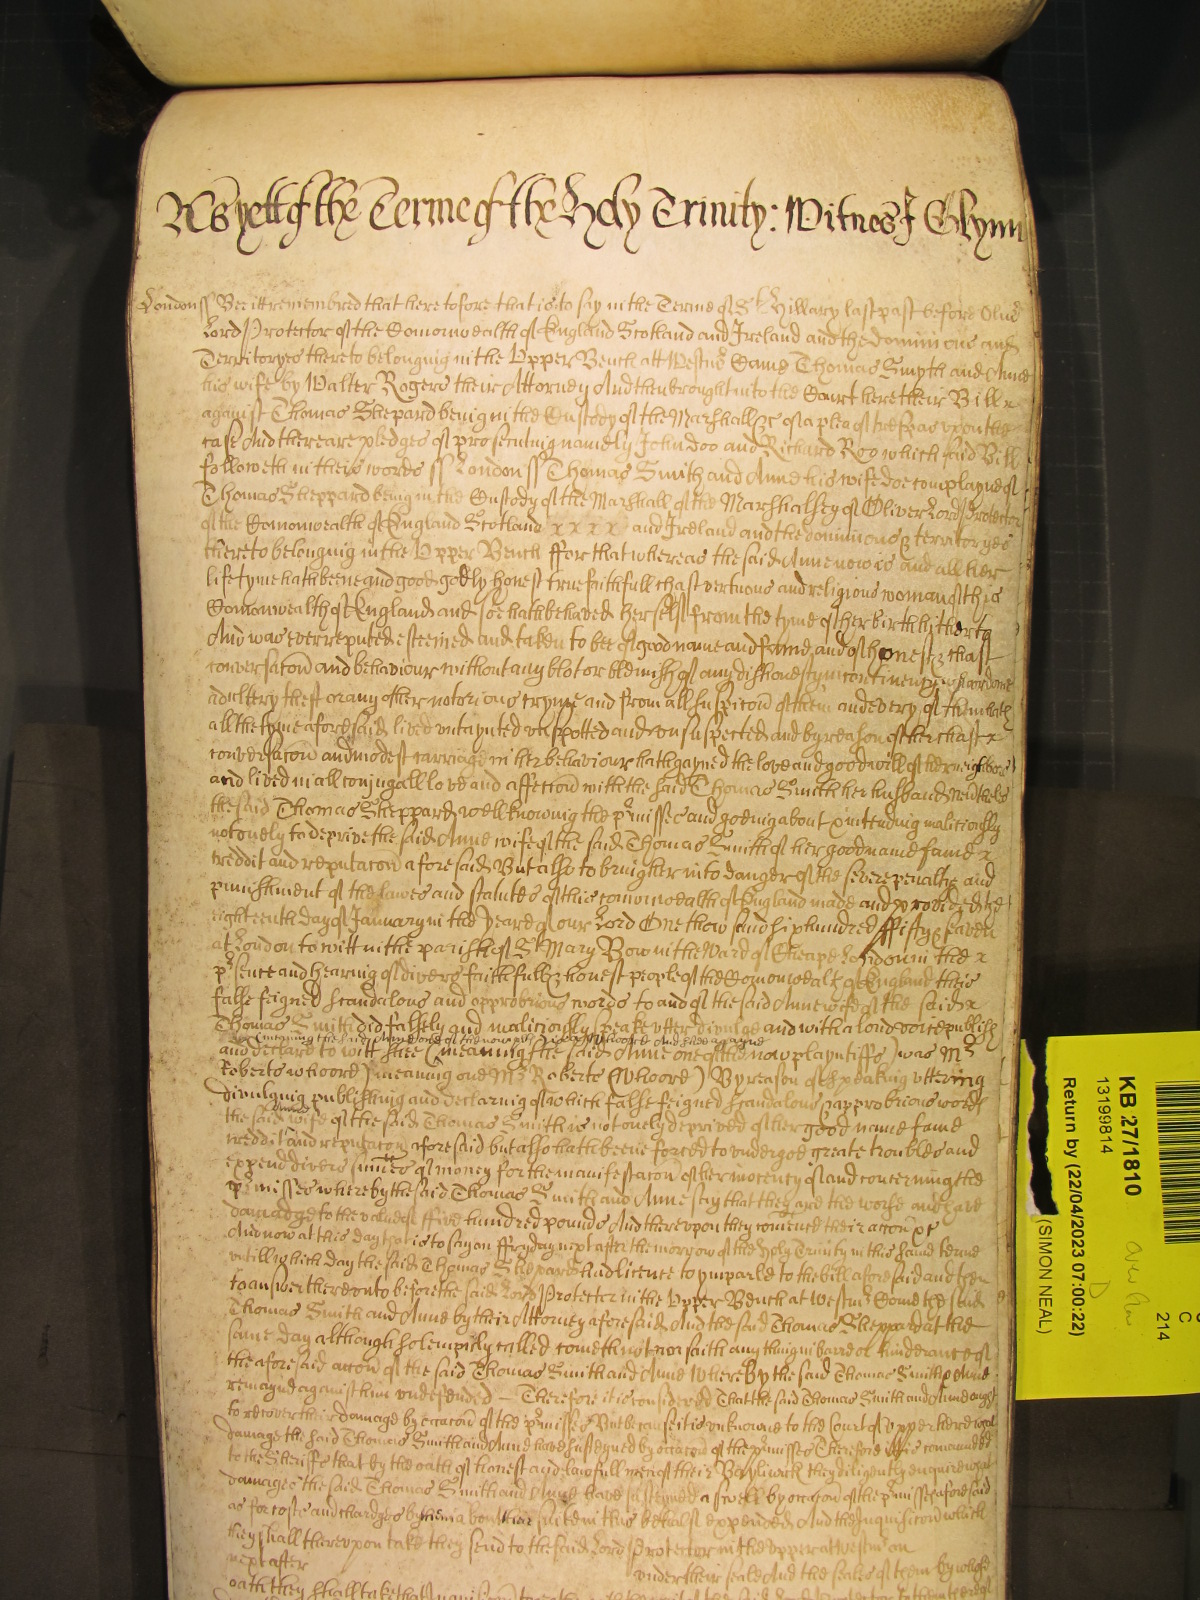 As yett of the Terme of the Holy Trinity: Witnes J Glynn
London ss Bee itt remembred that heretofore that is to say in the Terme of St Hillary last past before Oliver
Lord Protector of the Comonwealth of England Scotland and Ireland and the Dominions and
Territoryes thereto belonging in the Upper Bench att Westmr Came Thomas Smyth and Anne
his wife by Walter Rogers their Attorney And then brought into the Court here their Bill x
against Thomas Shepard being in the Custody of the Marshall &c of a plea of trespas upon the
case And there are pledges of prosecuting namely John Doo and Richard Roo which said Bill
followeth in theis words ss London ss Thomas Smith and Anne his wife doe complayne of
Thomas Sheppard being in the Custody of the Marshall of the Marshalsey of Oliver Lord Protector
of the Comonwealth of England Scotland x x x x and Ireland and the dominions & territoryes
thereto belonging in the Upper Bench ffor that whereas the said Anne now is and all her
lifetyme hath beene and good godly honest true faithfull chast vertuous and religious woman of this
Comonwealth of England and soe hath behaved herselfe from the tyme of her birth hitherto
And was ever reputed esteemed and taken to bee of good name and fame and of honest & chast
conversacon and behaviour without any blot or blemish of any dishonesty incontinency whordome
adultery theft or any other notorious cryme and from all suspicon of them and every of them hath
all the tyme aforesaid lived untaynted unspotted and unsuspected and by reason of her chast x
conversacon and modest carriage in her behaviour hath gayned the love and goodwill of her neighbors
and lived in all conjugall love and affeccon with the said Thomas Smith her husband Neverthels
the said Thomas Sheppard well knowing the pmisses and goeing about & intending malitiously
not onely to deprive the said Anne wife of the said Thomas Smith of her good name fame x
creddit and reputacon aforesaid But alsoe to bring her into danger of the severe penaltye and
punishment of the lawes and statutes of this comonwealth of England made and provided the
eighteenth day of January in the yeare of our Lord One thousand six hundred ffifty & seaven
at London to witt in the parish of St Mary Bow in the Ward of Cheape London in the x
psence and hearing of divers faithfull & honest people of the Comonwealth of England theis
false feigned scandalous and opprobrious words to and of the said Anne wife of the said x
Thomas Smith did falsely and maliciously speake utter divulge and with a loud voice publish
and declare to witt shee (meaning the said Anne one of the now playntiffs) was Mr
Roberts whoore) meaning one Mr Roberts (Whoore) By reason of speaking uttering
divulging publishing and declaring of which false feigned scandalous & opprobrious words
the said Anne wife of the said Thomas Smith is not onely deprived of her good name fame
creddit and reputacon aforesaid but alsoe hath beene forced to undergoe greate troubles and
expend divers summes of money for the manifestacon of her inocency of and concerning the
pmisses whereby the said Thomas Smith and Anne say that they are the worse and have
damadge to the value of ffive hundred pounds And thereupon they comence their accon &c
And now at this day that is to say on ffryday next after the morrow of the Holy Trinity in this same terme
untill which day the said Thomas Shepard had licence to imparle to the bill aforesaid and then
to answer thereunto before the said Lord Protector in the Upper Bench at Westmr Come the said
Thomas Smith and Anne by their Attorney aforesaid And the said Thomas Sheppard at the
same day although solempnly called cometh not nor saith any thing in barr or hinderance of
the aforesaid accon of the said Thomas Smith and Anne Whereby the said Thomas Smith & Anne
remayne against him undefended Therefore it is considered That the said Thomas Smith and Anne ought
to recover their damage by occacon of the pmisses But because it is unknowne to the Court of Upper here what
damage the said Thomas Smith and Anne have susteyned by occacon of the pmisses Therefore it is comanded
to the Sheriffs that by the oath of honest and lawfull men of their Bayliwick they diligently enquire what
damages the said Thomas Smith and Anne have susteyned aswell by occacon of the pmisses aforesaid
as for costs and chardges by them about their suite in this behalfe expended And the Inquisicon which
they shall thereupon take they send to the said Lord Protector in the upper at Westm on
next after under their seale And the seales of them by whose
oath they shall take that
KB 27/1810
13199814
Return by (22/04/2023 07:00:22)
(SIMON NEAL)
C
214